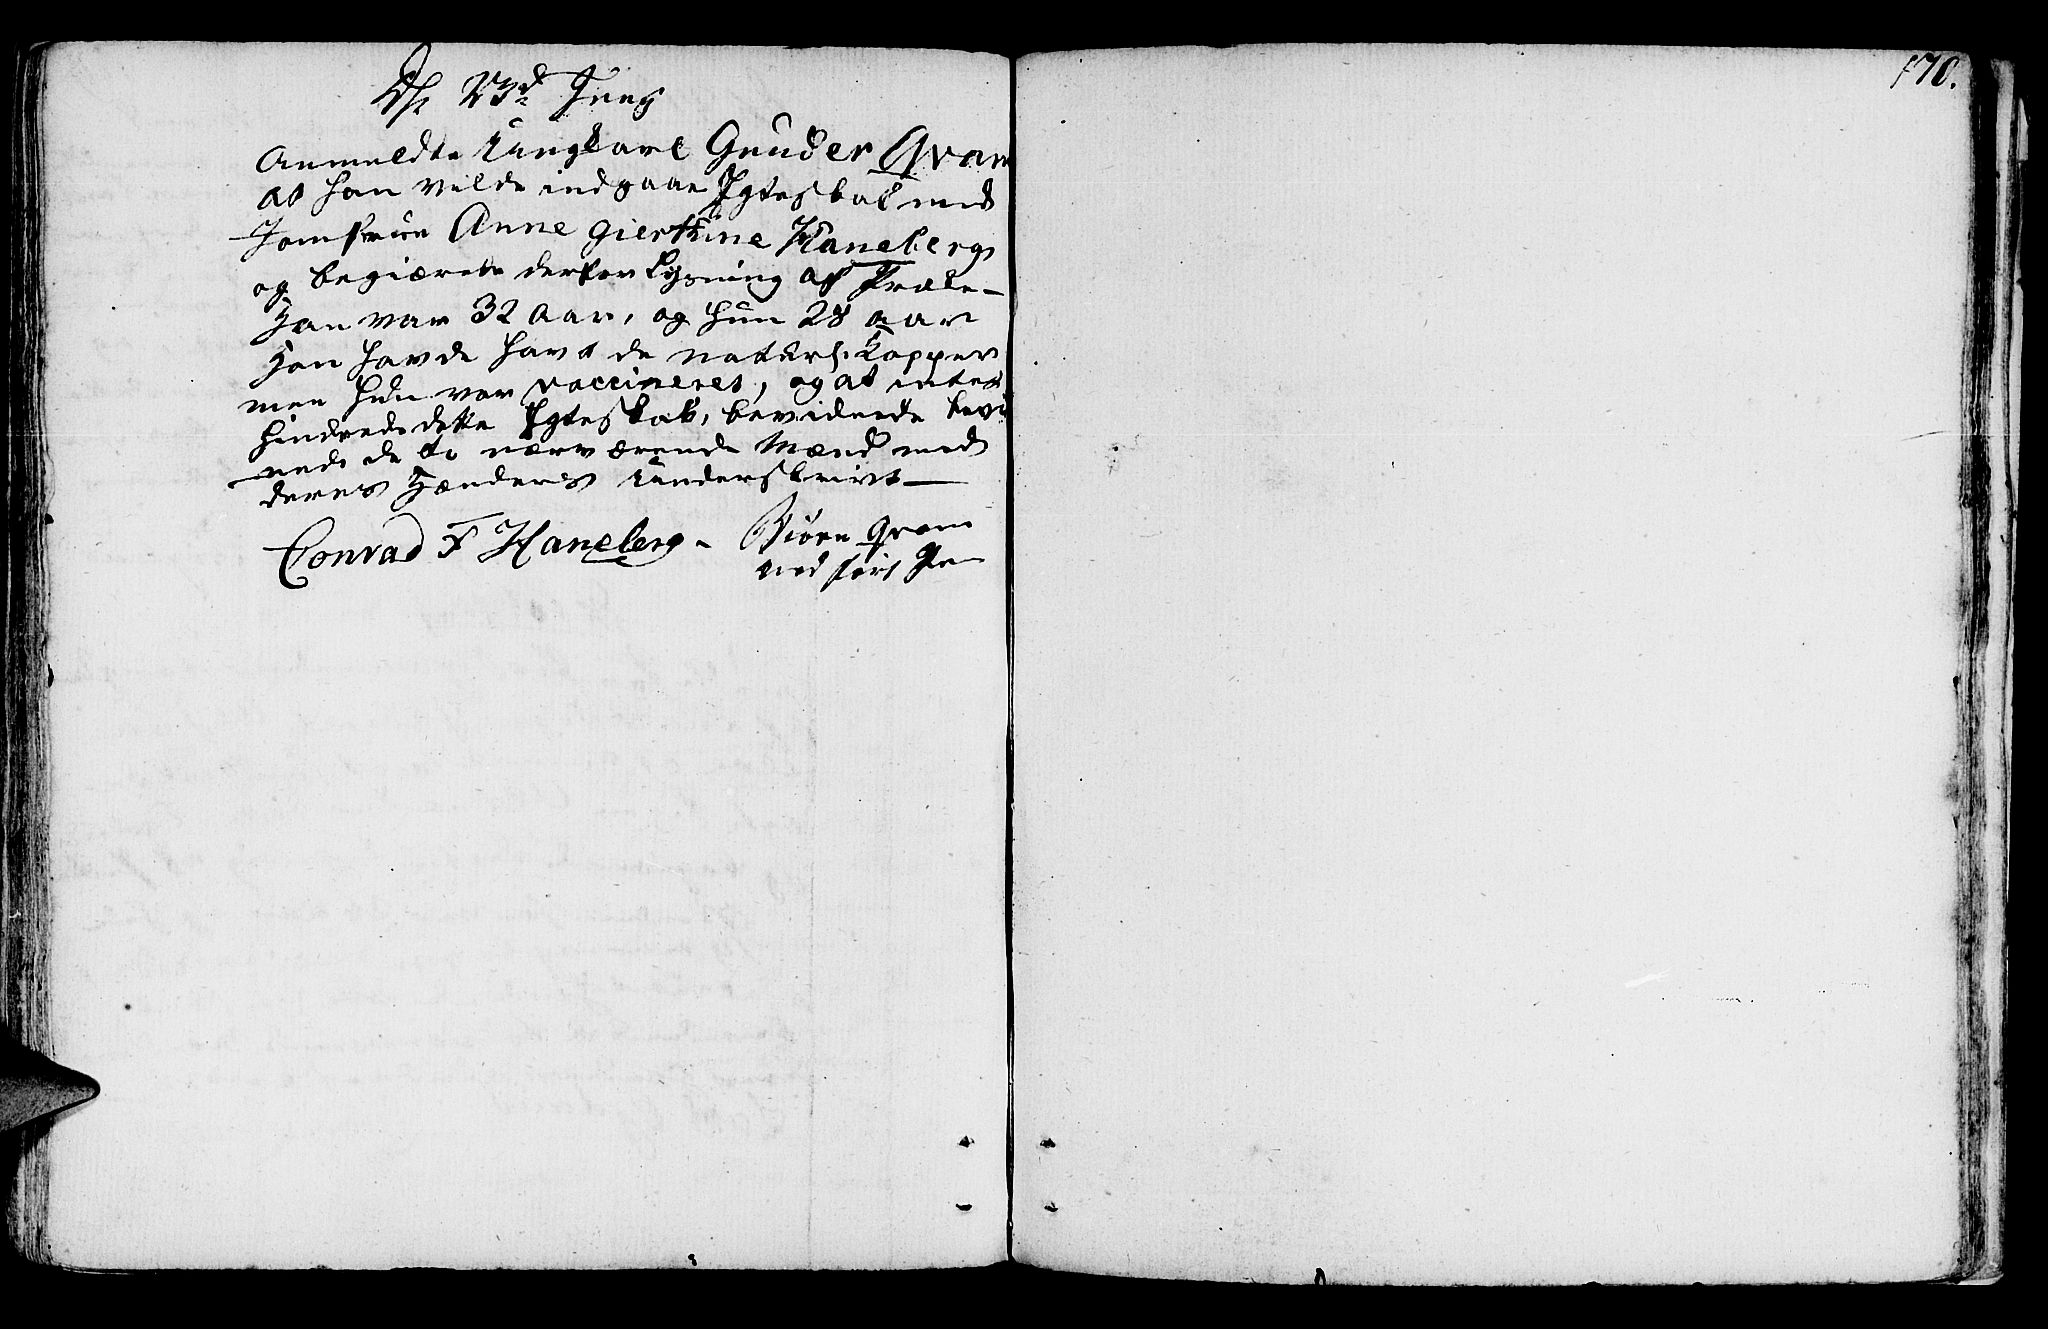 170.
23d Juny
Anmeldte Ungkarl Gunder Qvam
at han vilde indgaae Ægteskab med
Jomfrue Anne Gierthine Haneberg
og begiærede derfor Lysning af Præke-
Han var 32 Aar, og hun 28 aar
Han havde havt de naturl: Kopper
men hun var vaccineret, og at intet
hindrede dette Ægteskab, bevidnede
de to nærværende Mænd med
deres Hænders Underskrivt—
Conrad F Haneberg - Biörn Qvam
med ført Pen